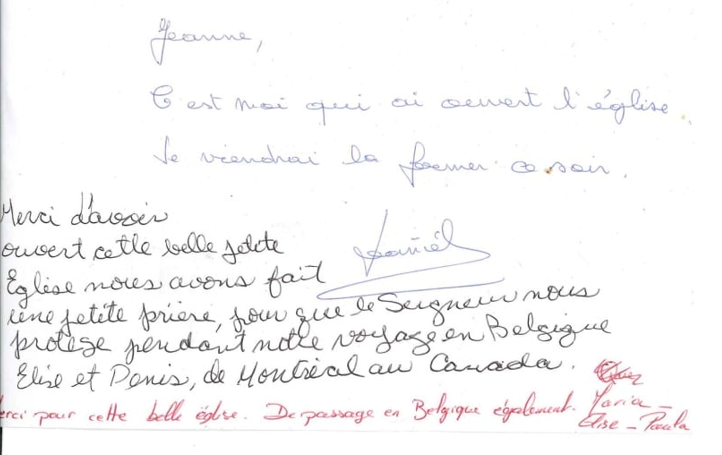 Jeanne,
C'est moi qui ai ouvert l'église.
Je viendrai la fermer ce soir.
Daniel
Merci d'avoir
ouvert cette belle petite
Eglise nous avons fait
une petite prière, pour que le Seigneur nous
protège pendant notre voyage en Belgique
Elise et Denis, de Montréal au Canada.
erci pour cette belle église. De passage en Belgique également. Maria -
Elise - Paula